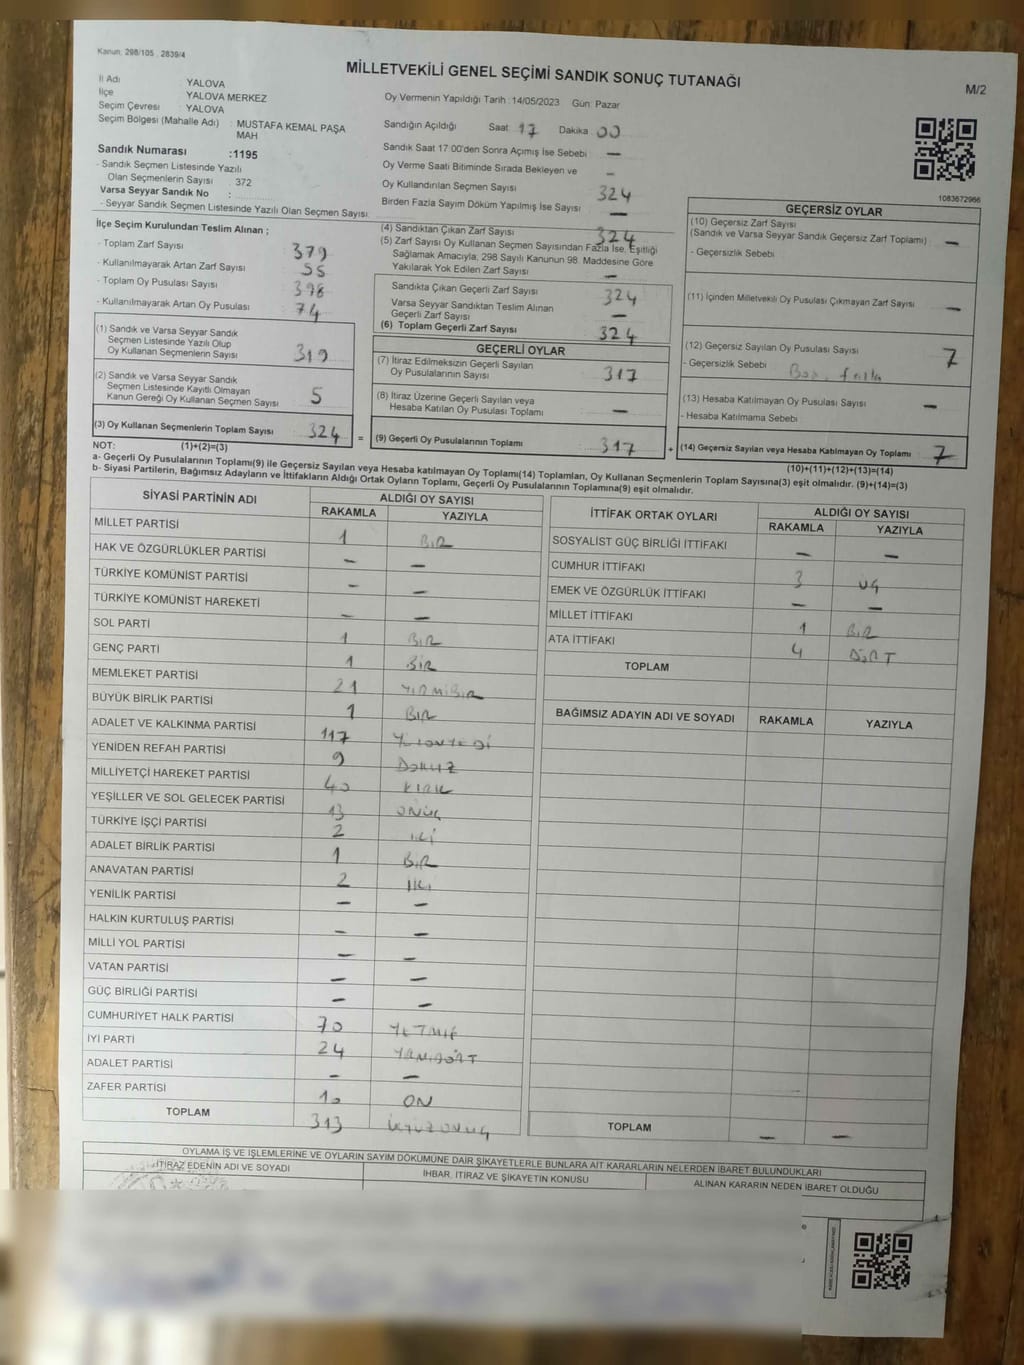 Kanun: 298/105 , 2839/4
MİLLETVEKİLİ GENEL SEÇİMİ SANDIK SONUÇ TUTANAĞI
M/2
İl Adı YALOVA
İlçe YALOVA MERKEZ
Seçim Çevresi : YALOVA
Seçim Bölgesi (Mahalle Adı) : MUSTAFA KEMAL PAŞA MAH
Sandık Numarası :1195
- Sandık Seçmen Listesinde Yazılı
Olan Seçmenlerin Sayısı : 372
Varsa Seyyar Sandık No :
- Seyyar Sandık Seçmen Listesinde Yazılı Olan Seçmen Sayısı:
Oy Vermenin Yapıldığı Tarih : 14/05/2023 Gün: Pazar
Sandığın Açıldığı Saat 17 Dakika 00
Sandık Saat 17:00'den Sonra Açımış İse Sebebi —
Oy Verme Saati Bitiminde Sırada Bekleyen ve -
Oy Kullandırılan Seçmen Sayısı 324
Birden Fazla Sayım Döküm Yapılmış İse Sayısı —
1083672966
İlçe Seçim Kurulundan Teslim Alınan ;
- Toplam Zarf Sayısı 379
- Kullanılmayarak Artan Zarf Sayısı 55
- Toplam Oy Pusulası Sayısı 398
- Kullanılmayarak Artan Oy Pusulası 74
(1) Sandık ve Varsa Seyyar Sandık
Seçmen Listesinde Yazılı Olup
Oy Kullanan Seçmenlerin Sayısı 319
(2) Sandık ve Varsa Seyyar Sandık
Seçmen Listesinde Kayıtlı Olmayan
Kanun Gereği Oy Kullanan Seçmen Sayısı 5
(3) Oy Kullanan Seçmenlerin Toplam Sayısı 324 =
(4) Sandıktan Çıkan Zarf Sayısı 324
(5) Zarf Sayısı Oy Kullanan Seçmen Sayısından Fazla İse, Eşitliği
Sağlamak Amacıyla, 298 Sayılı Kanunun 98. Maddesine Göre
Yakılarak Yok Edilen Zarf Sayısı —
Sandıkta Çıkan Geçerli Zarf Sayısı 324
Varsa Seyyar Sandıktan Teslim Alınan
Geçerli Zarf Sayısı —
(6) Toplam Geçerli Zarf Sayısı 324
GEÇERLİ OYLAR
(7) İtiraz Edilmeksizin Geçerli Sayılan
Oy Pusulalarının Sayısı 317
(8) İtiraz Üzerine Geçerli Sayılan veya
Hesaba Katılan Oy Pusulası Toplamı —
(9) Geçerli Oy Pusulalarının Toplamı 317 +
GEÇERSİZ OYLAR
(10) Geçersiz Zarf Sayısı
(Sandık ve Varsa Seyyar Sandık Geçersiz Zarf Toplamı) —
- Geçersizlik Sebebi
(11) İçinden Milletvekili Oy Pusulası Çıkmayan Zarf Sayısı —
(12) Geçersiz Sayılan Oy Pusulası Sayısı 7
- Geçersizlik Sebebi
(13) Hesaba Katılmayan Oy Pusulası Sayısı —
- Hesaba Katılmama Sebebi
(14) Geçersiz Sayılan veya Hesaba Katılmayan Oy Toplamı 7
NOT: (1)+(2)=(3)
(10)+(11)+(12)+(13)=(14)
a- Geçerli Oy Pusulalarının Toplamı(9) ile Geçersiz Sayılan veya Hesaba katılmayan Oy Toplamı(14) Toplamları, Oy Kullanan Seçmenlerin Toplam Sayısına(3) eşit olmalıdır. (9)+(14)=(3)
b- Siyasi Partilerin, Bağımsız Adayların ve İttifakların Aldığı Ortak Oyların Toplamı, Geçerli Oy Pusulalarının Toplamına(9) eşit olmalıdır.
SİYASİ PARTİNİN ADI ALDIĞI OY SAYISI
RAKAMLA YAZIYLA
MİLLET PARTİSİ 1 BİR
HAK VE ÖZGÜRLÜKLER PARTİSİ — —
TÜRKİYE KOMÜNİST PARTİSİ — —
TÜRKİYE KOMÜNİST HAREKETİ — —
SOL PARTİ 1 BİR
GENÇ PARTİ 1 BİR
MEMLEKET PARTİSİ 21 YİRMİBİR
BÜYÜK BİRLİK PARTİSİ 1 BİR
ADALET VE KALKINMA PARTİSİ 117
YENİDEN REFAH PARTİSİ 9 DOKUZ
MİLLİYETÇİ HAREKET PARTİSİ 40 KIRK
YEŞİLLER VE SOL GELECEK PARTİSİ 13 ONÜÇ
TÜRKİYE İŞÇİ PARTİSİ 2 İKİ
ADALET BİRLİK PARTİSİ 1 BİR
ANAVATAN PARTİSİ 2 İKİ
YENİLİK PARTİSİ — —
HALKIN KURTULUŞ PARTİSİ — —
MİLLİ YOL PARTİSİ — —
VATAN PARTİSİ — —
GÜÇ BİRLİĞİ PARTİSİ — —
CUMHURİYET HALK PARTİSİ 70 YETMİŞ
İYİ PARTİ 24 YİRMİDÖRT
ADALET PARTİSİ — —
ZAFER PARTİSİ 10 ON
TOPLAM 313 ÜÇYÜZONÜÇ
İTTİFAK ORTAK OYLARI ALDIĞI OY SAYISI
RAKAMLA YAZIYLA
SOSYALİST GÜÇ BİRLİĞİ İTTİFAKI — —
CUMHUR İTTİFAKI 3 ÜÇ
EMEK VE ÖZGÜRLÜK İTTİFAKI — —
MİLLET İTTİFAKI 1 BİR
ATA İTTİFAKI 4 DÖRT
TOPLAM
BAĞIMSIZ ADAYIN ADI VE SOYADI RAKAMLA YAZIYLA
TOPLAM — —
OYLAMA İŞ VE İŞLEMLERİNE VE OYLARIN SAYIM DÖKÜMÜNE DAİR ŞİKAYETLERLE BUNLARA AİT KARARLARIN NELERDEN İBARET BULUNDUKLARI
İTİRAZ EDENİN ADI VE SOYADI İHBAR, İTİRAZ VE ŞİKAYETİN KONUSU ALINAN KARARIN NEDEN İBARET OLDUĞU